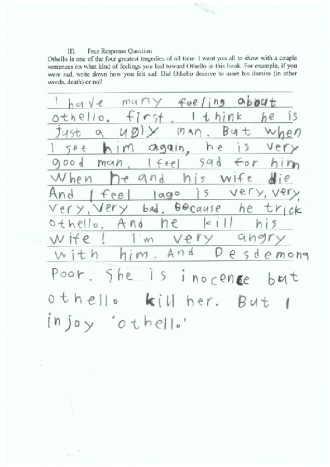 III. Free Response Question
Othello is one of the four greatest tragedies of all time. I want you all to show with a couple
sentences on what kind of feelings you had toward Othello at this book. For example, if you
were sad, write down how you felt sad. Did Othello deserve to meet his demise (in other
words, death) or no?
I have many feeling about
othello. first. I think he is
Just a ugly man. But when
I see him again, he is very
good man. I feel sad for him
When he and his wife die
And I feel Iago is very, very,
very, very bad. because he trick
othello. And he kill his
wife! I'm very angry
with him. And Desdemona
Poor. She is inocence but
othello kill her. But I
injoy 'othello.'